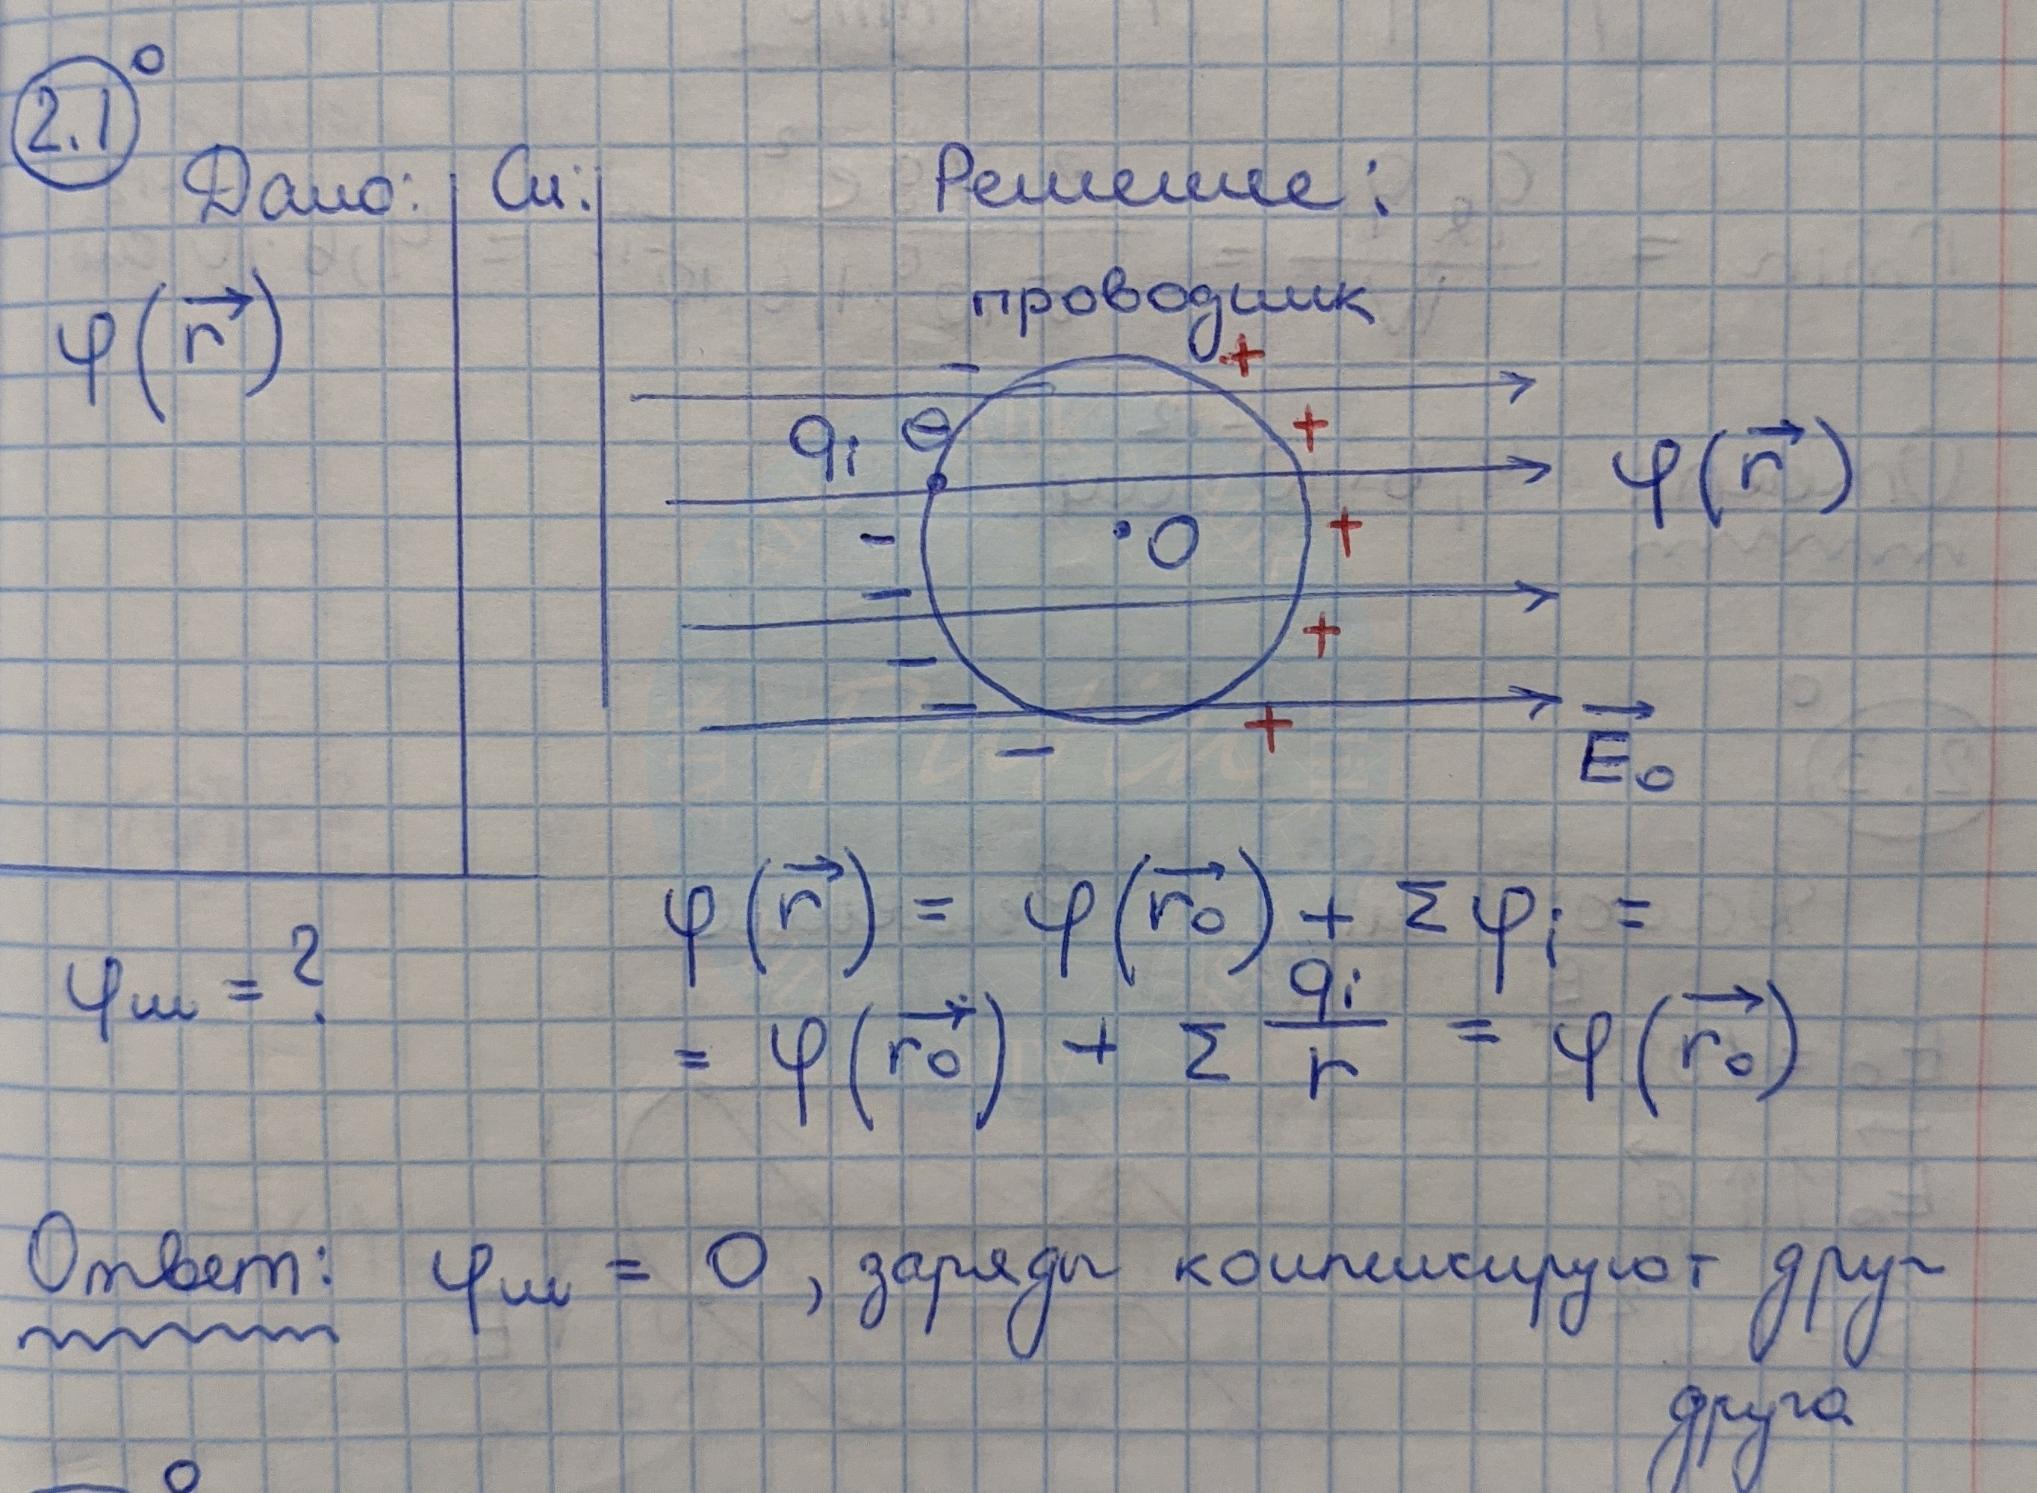 2.1°
Дано: Си: Решение:
проводник
φ(r⃗)
- +
qᵢ ⊖ +
φ(r⃗)
- • O +
-
- +
- +
-
E⃗₀
φ(r⃗) = φ(r⃗₀) + Σφᵢ =
φш = ?
= φ(r⃗₀) + Σ qᵢ/r = φ(r⃗₀)
Ответ: φш = 0, заряды компенсируют друг
друга